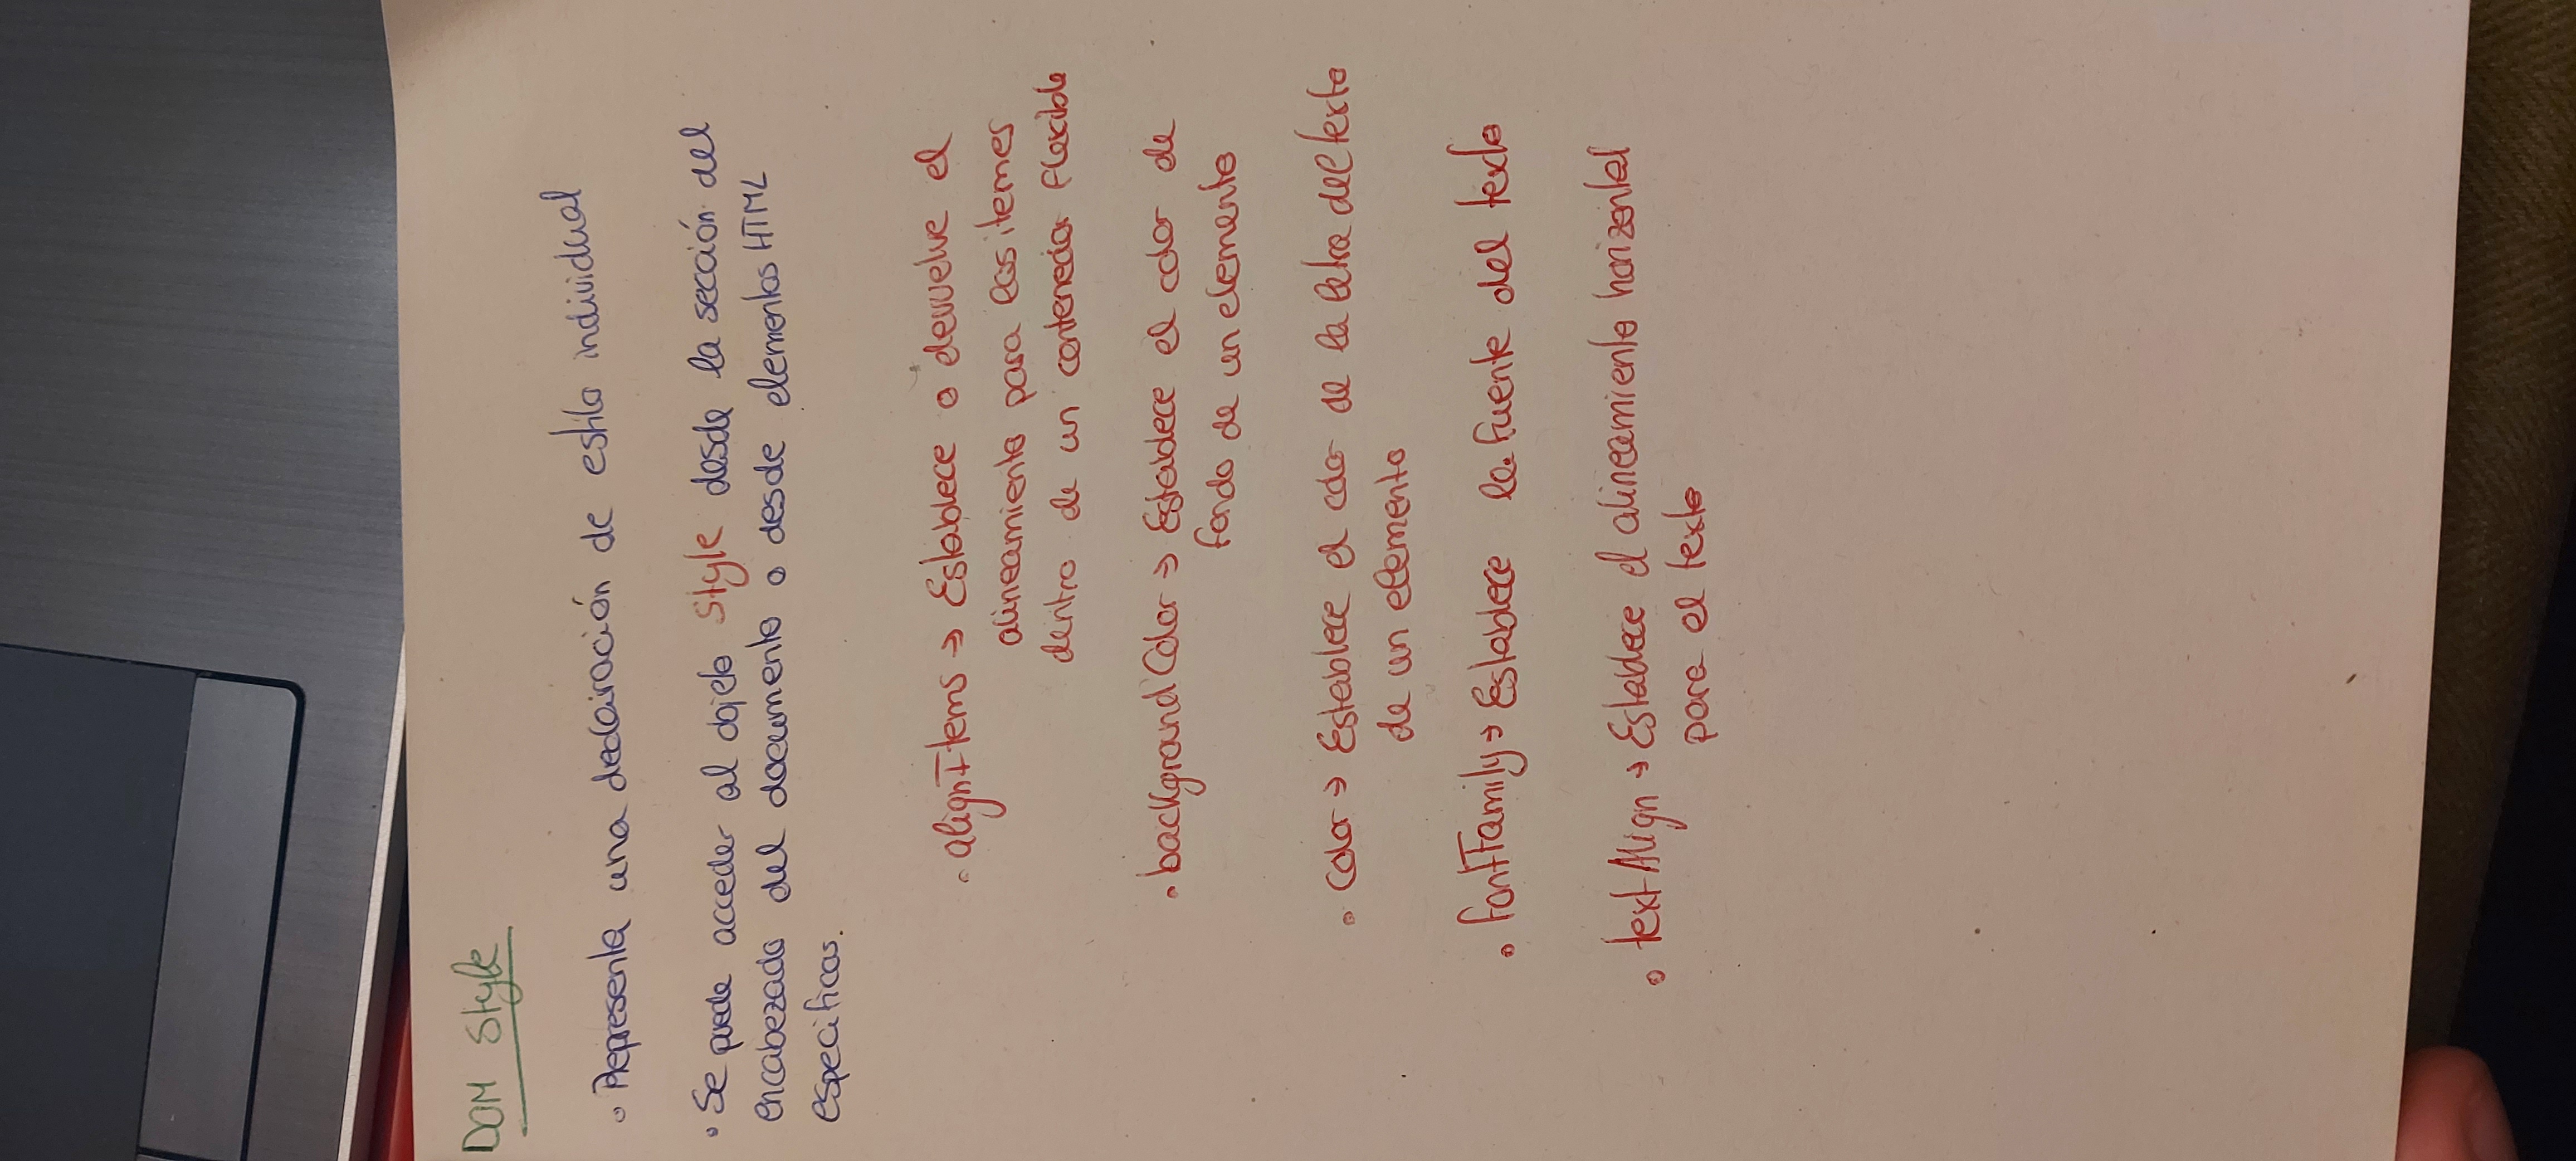 DOM Style
• Representa una declaración de estilo individual
• Se puede acceder al objeto Style desde la sección del
encabezado del documento o desde elementos HTML
especificos.
• alignItems → Establece o devuelve el
alineamiento para los itemes
dentro de un contenedor flexible
• backgroundColor → Establece el color de
fondo de un elemento
• Color → Establece el color de la letra del texto
de un elemento
• fontFamily → Establece la fuente del texto
• textAlign → Establece el alineamiento horizontal
para el texto